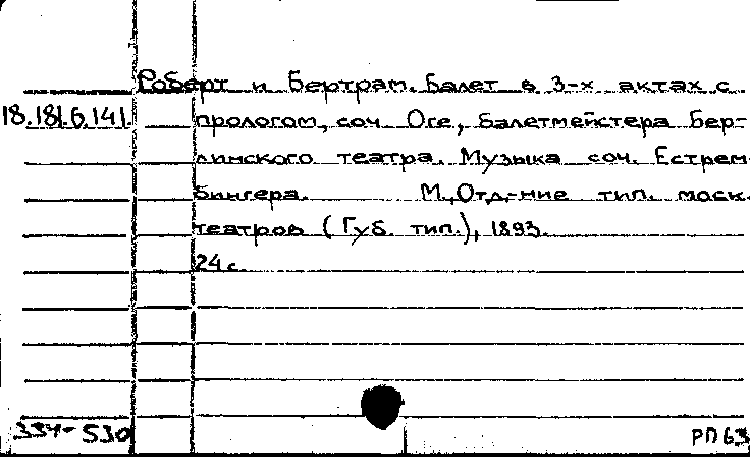 Роберт и Бертрам. Балет в 3-х актах с
18.181.6.141. прологом, соч. Оге, балетмейстера Бер-
линского театра. Музыка соч. Естрем-
бингера. М., Отд-ние тип. моск.
театров (Губ. тип.), 1893.
24 с.
334-530
РП 63